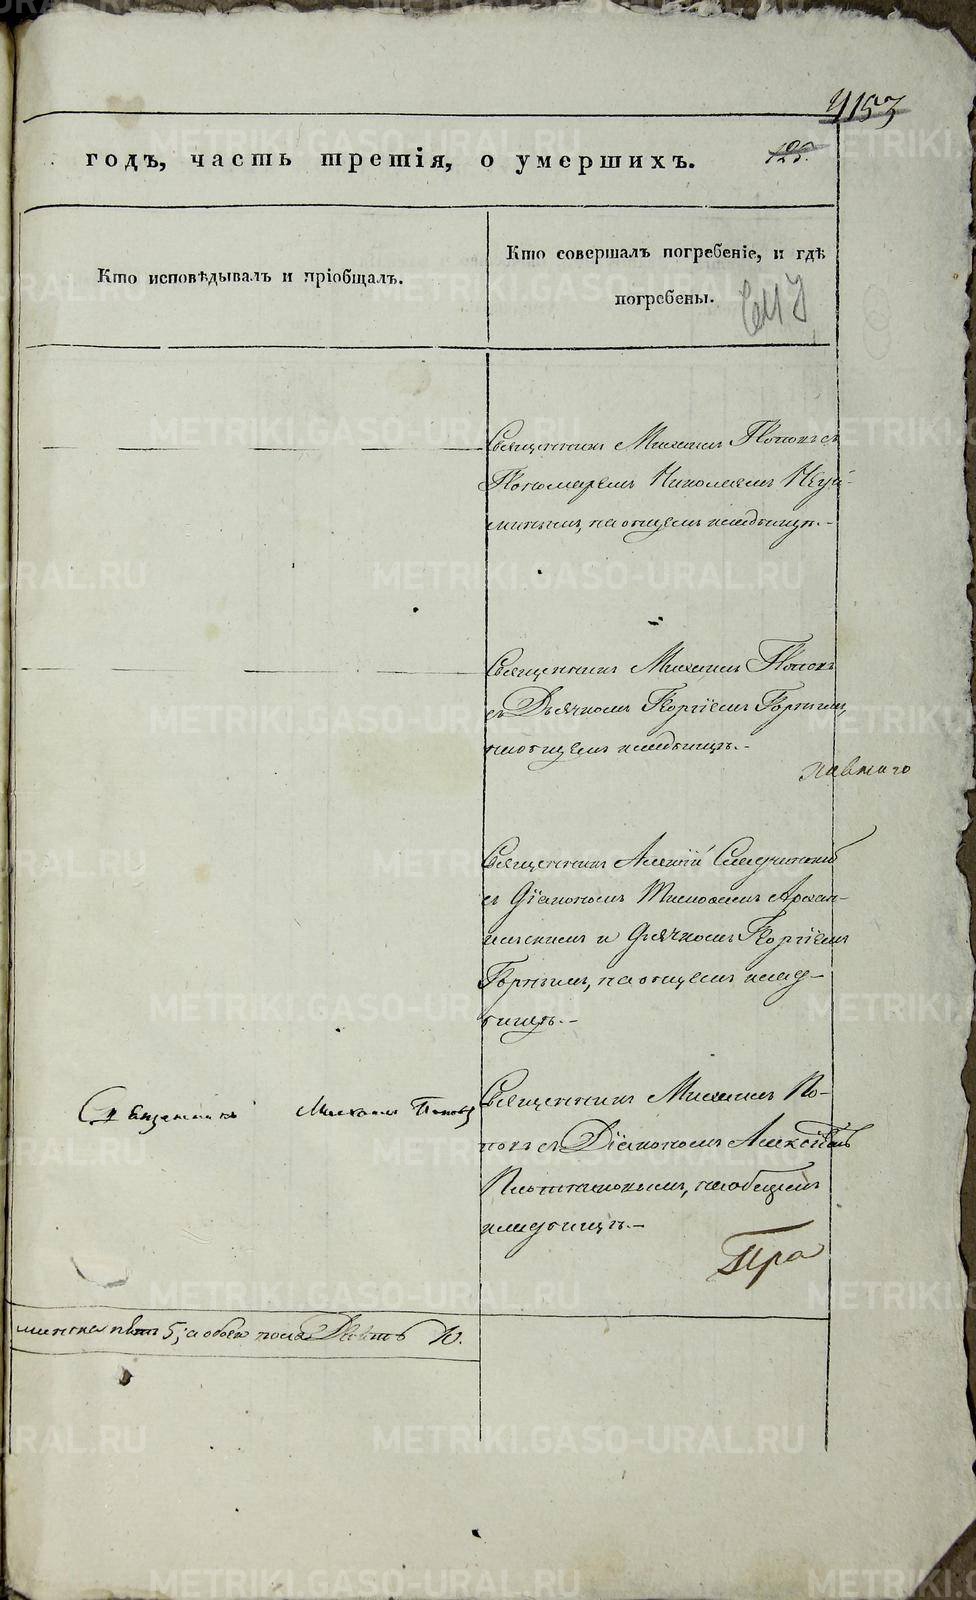 4153
годъ, часть третія, о умершихъ.
125.
Кто исповѣдывалъ и пріобщалъ.
Кто совершалъ погребеніе, и гдѣ
погребены.
Священникъ Михаилъ Поповъ съ
Пономаремъ Николаемъ Неуй-
минымъ, на общемъ кладбищѣ.-
Священникъ Михаилъ Поповъ
съ Дьячкомъ Георгіемъ Горнымъ,
на общемъ кладбищѣ.-
Священникъ Алексій
съ Діакономъ Архан-
гельскимъ и Дьячкомъ Георгіемъ
Горнымъ, на общемъ клад-
бищѣ.-
Священникъ Михаилъ Поповъ
Священникъ Михаилъ По-
повъ съ Діакономъ Алексіемъ
Платоновымъ, на общемъ
кладбищѣ.-
Пра
женска 5; а обоего пола 10.
METRIKI.GASO-URAL.RU